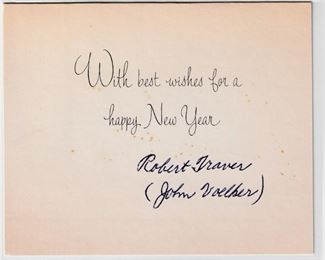 With best wishes for a
happy New Year
Robert Traver
(John Voelker)